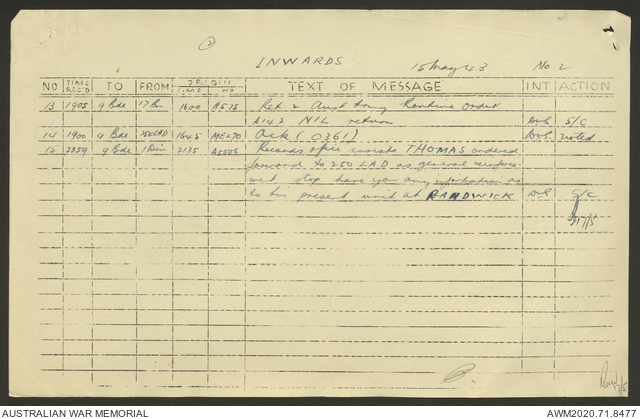 INWARDS 15 May 43 No 2
NO TIME REC'D TO FROM ORIGIN TIME NO TEXT OF MESSAGE INT ACTION
13 1905 9 Bde 17 Bn 1600 A575 Ref. 2 Aust Routine Order
A142 NIL return S/C
14 1900 9 Bde 250 LAD 1645 AE470 Ack (0361) noted
15 2359 9 Bde 1 Div 2135 Records THOMAS ordered
forward to 250 LAD as general reinforce-
ment stop have you any information as
to his present unit at RANDWICK S/C
17/5
AUSTRALIAN WAR MEMORIAL AWM2020.71.8477